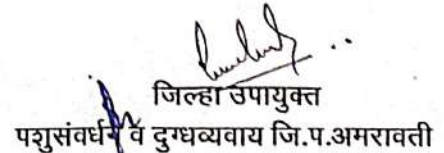 जिल्हा उपायुक्त
पशुसंवर्धन व दुग्धव्यवाय जि.प.अमरावती